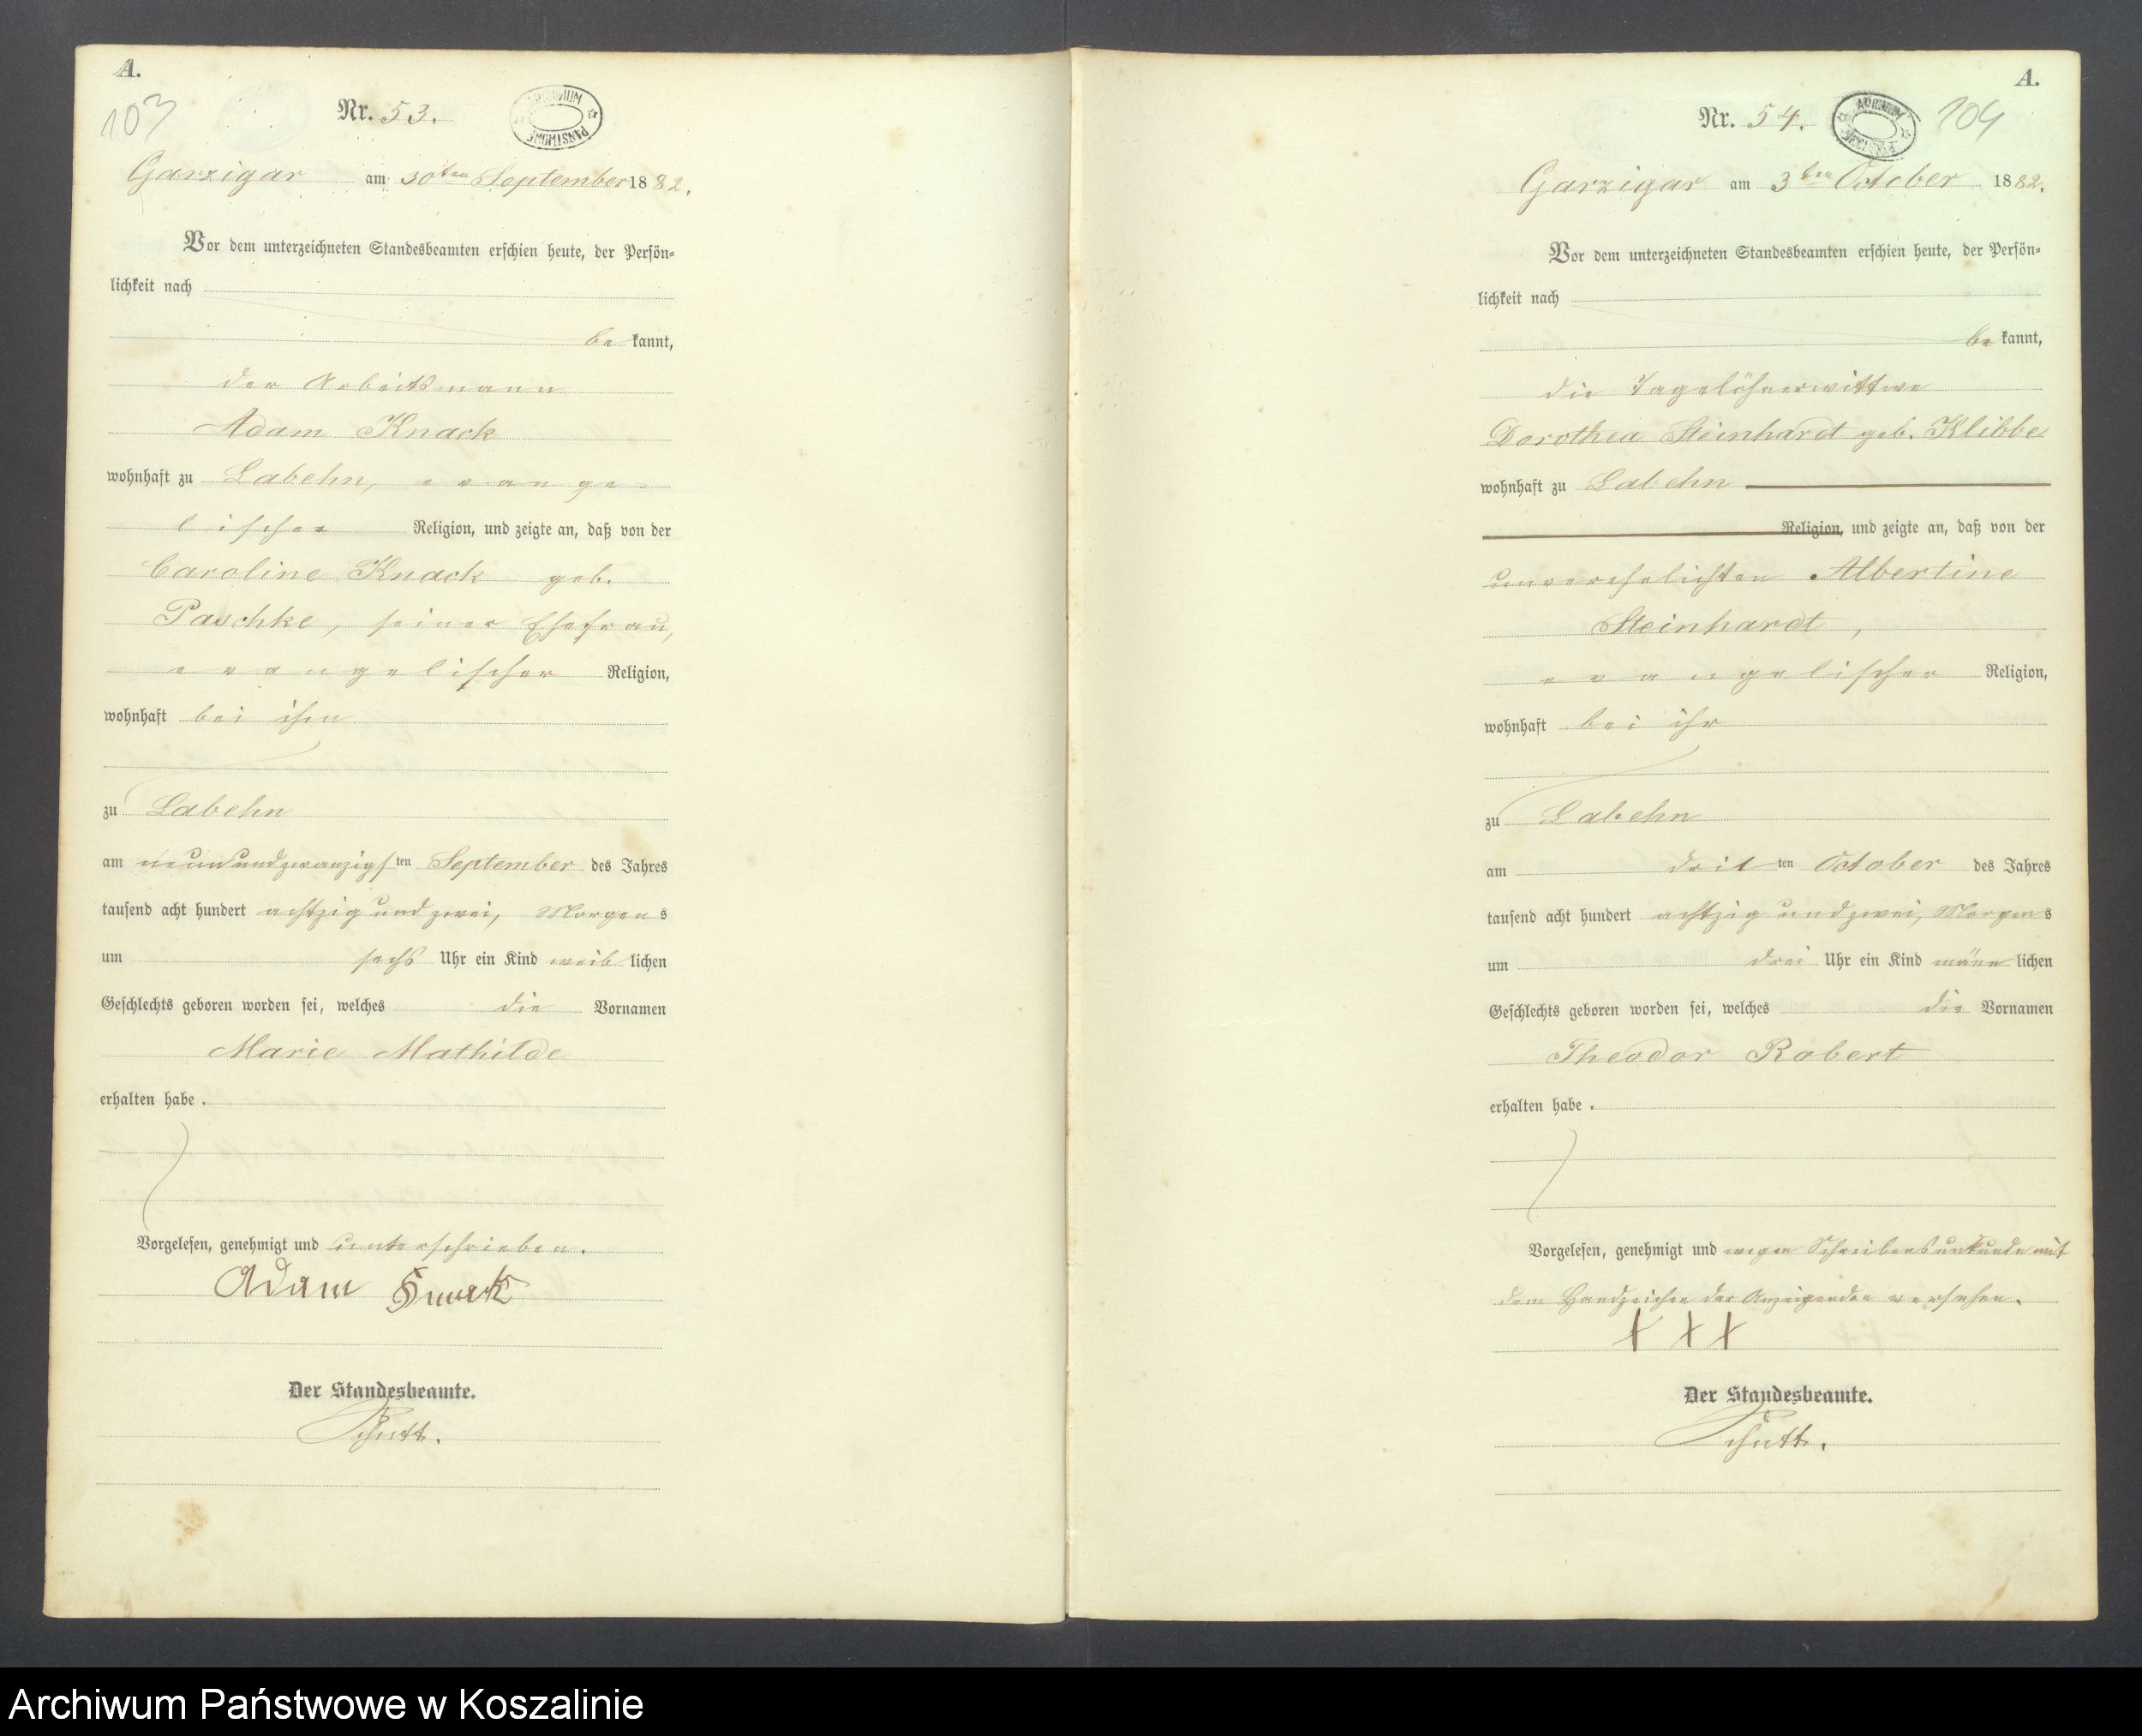 A.
103
Nr. 53.
ARCHIWUM PAŃSTWOWE
Garzigar am 30ten September 1882.
Vor dem unterzeichneten Standesbeamten erschien heute, der Persön-
lichkeit nach
bekannt,
der Arbeitsmann
Adam Knack
wohnhaft zu Labehn, evange-
lischer Religion, und zeigte an, daß von der
Caroline Knack geb.
Paschke, seiner Ehefrau,
evangelischer Religion,
wohnhaft bei ihm
zu Labehn
am neunundzwanzigsten September des Jahres
tausend acht hundert achtzig und zwei, Morgens
um sechs Uhr ein Kind weiblichen
Geschlechts geboren worden sei, welches die Vornamen
Marie Mathilde
erhalten habe.
Vorgelesen, genehmigt und unterschrieben.
Adam Knack
Der Standesbeamte.
Schutt.
A.
Nr. 54.
ARCHIWUM PAŃSTWOWE
104
Garzigar am 3ten October 1882.
Vor dem unterzeichneten Standesbeamten erschien heute, der Persön-
lichkeit nach
bekannt,
die Tagelöhnerwittwe
Dorothea Steinhardt geb. Klibbe
wohnhaft zu Labehn
Religion, und zeigte an, daß von der
unverehelichten Albertine
Steinhardt,
evangelischer Religion,
wohnhaft bei ihr
zu Labehn
am dritten October des Jahres
tausend acht hundert achtzig und zwei, Morgens
um drei Uhr ein Kind männlichen
Geschlechts geboren worden sei, welches die Vornamen
Theodor Robert
erhalten habe.
Vorgelesen, genehmigt und wegen Schreibensunkunde mit
dem Handzeichen der Anzeigenden versehen.
+ + +
Der Standesbeamte.
Schutt.
Archiwum Państwowe w Koszalinie